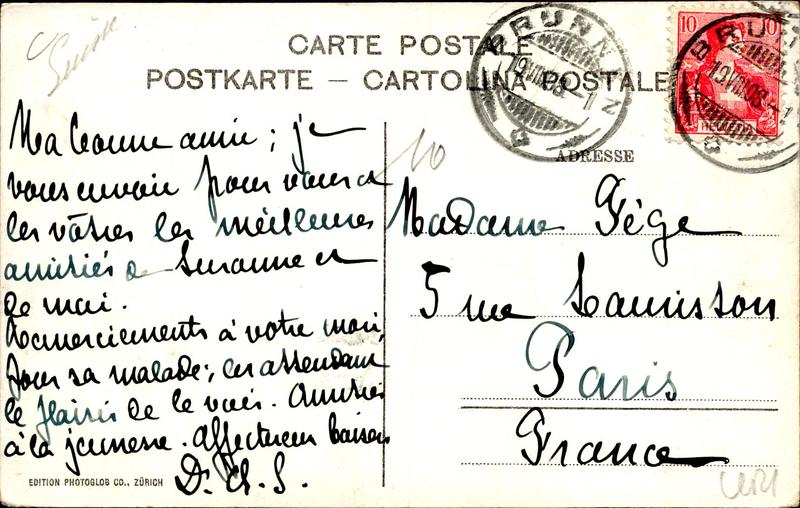 Suisse.
CARTE POSTALE
POSTKARTE — CARTOLINA POSTALE
BRUNNEN
19.VIII.08.-1
10 10
HELVETIA
BRUN
19.VIII.08.-1
10
ADRESSE
Ma bonne amie ; je
vous envoie pour vous et
les vôtres les meilleures
amitiés de Suzanne et
de moi.
Remerciements à votre mari,
pour sa malade ; en attendant
le plaisir de le voir. Amitiés
à la jeunesse. Affectueux baisers
D. Ch. S.
Madame Fége
5 rue Laurisson
Paris
France
EDITION PHOTOGLOB CO., ZÜRICH